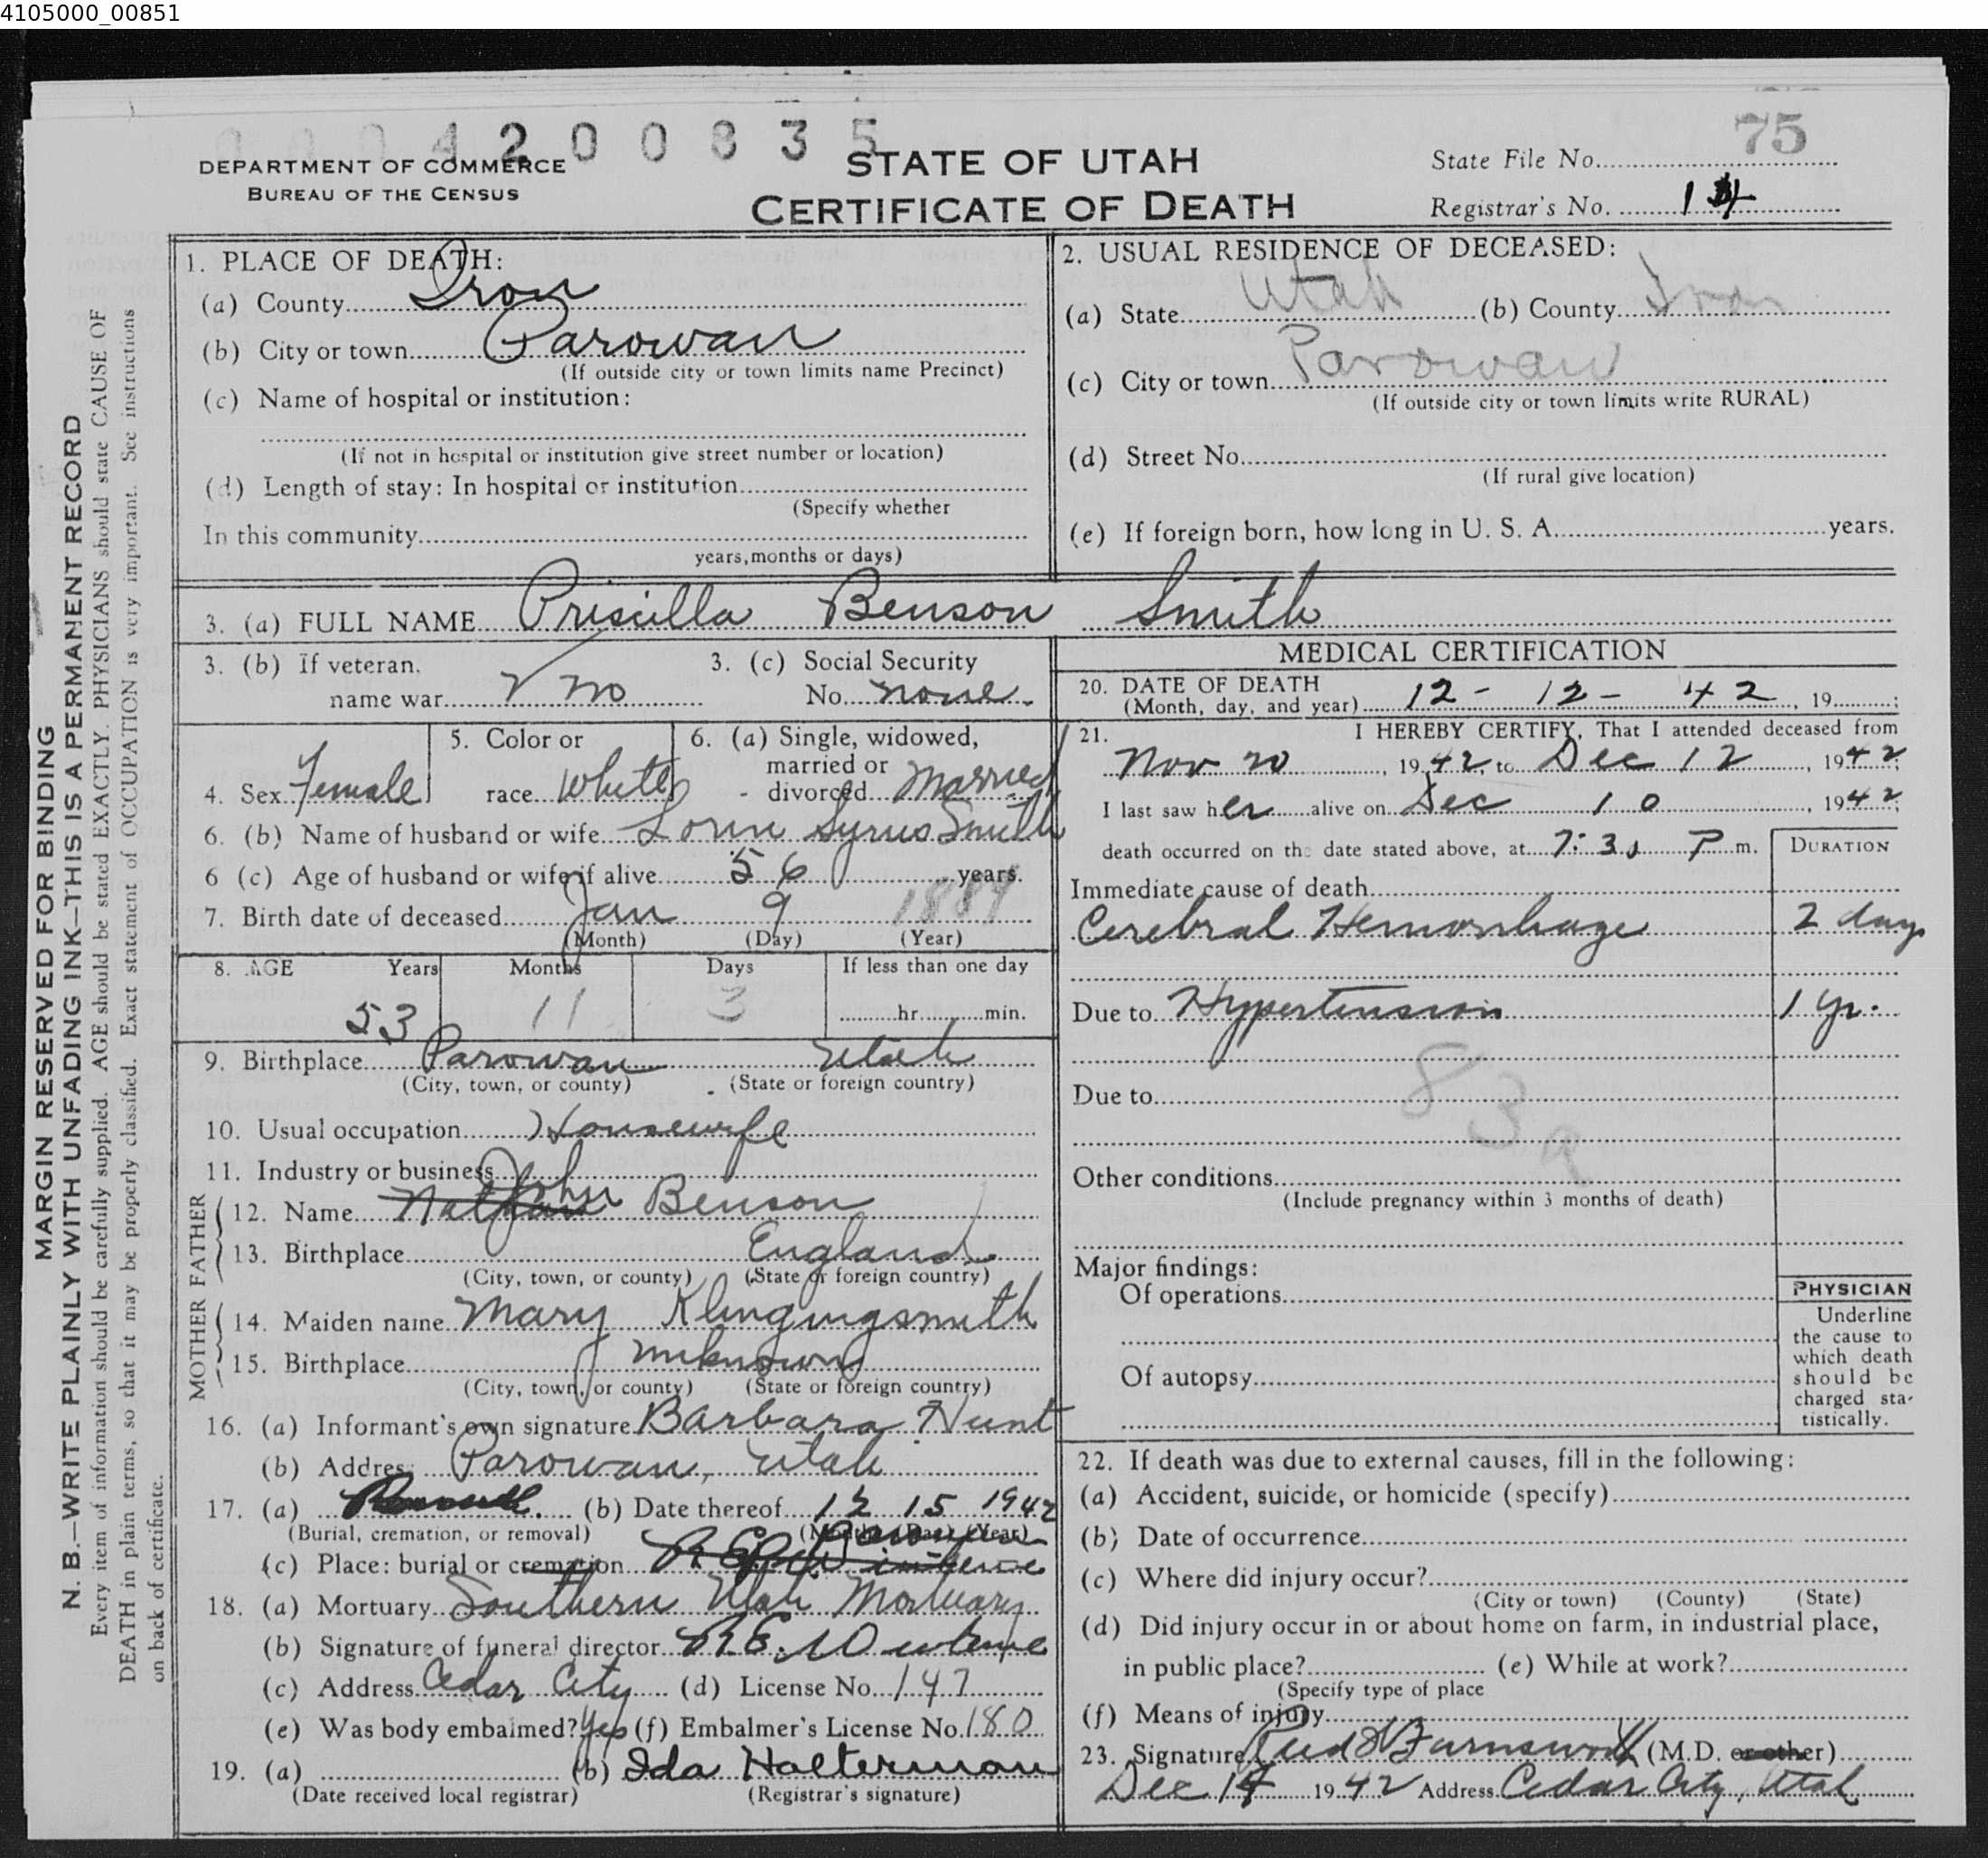 4105000_00851
0004200835
75
DEPARTMENT OF COMMERCE
BUREAU OF THE CENSUS
STATE OF UTAH
CERTIFICATE OF DEATH
State File No.
Registrar's No. 14
MARGIN RESERVED FOR BINDING
N. B.—WRITE PLAINLY WITH UNFADING INK—THIS IS A PERMANENT RECORD
Every item of information should be carefully supplied. AGE should be stated EXACTLY. PHYSICIANS should state CAUSE OF
DEATH in plain terms, so that it may be properly classified. Exact statement of OCCUPATION is very important. See instructions
on back of certificate.
1. PLACE OF DEATH:
(a) County Iron
(b) City or town Parowan
(If outside city or town limits name Precinct)
(c) Name of hospital or institution:
(If not in hospital or institution give street number or location)
(d) Length of stay: In hospital or institution
(Specify whether
In this community
years, months or days)
2. USUAL RESIDENCE OF DECEASED:
(a) State Utah (b) County Iron
(c) City or town Parowan
(If outside city or town limits write RURAL)
(d) Street No.
(If rural give location)
(e) If foreign born, how long in U. S. A. years.
3. (a) FULL NAME Priscilla Benson Smith
3. (b) If veteran. name war no
3. (c) Social Security No. none
4. Sex Female
5. Color or race White
6. (a) Single, widowed, married or divorced Married
6. (b) Name of husband or wife Lorin Syrus Smith
6 (c) Age of husband or wife if alive 56 years.
7. Birth date of deceased Jan 9 1889
(Month) (Day) (Year)
8. AGE Years Months Days If less than one day
53 11 3 hr. min.
9. Birthplace Parowan Utah
(City, town, or county) (State or foreign country)
10. Usual occupation Housewife
11. Industry or business
FATHER
12. Name Nathan John Benson
13. Birthplace England
(City, town, or county) (State or foreign country)
MOTHER
14. Maiden name Mary Klingingsmith
15. Birthplace unknown
(City, town, or county) (State or foreign country)
16. (a) Informant's own signature Barbara Hunt
(b) Address Parowan, Utah
17. (a) (b) Date thereof 12 15 1942
(Burial, cremation, or removal) (Month) (Day) (Year)
(c) Place: burial or cremation Parowan
18. (a) Mortuary Southern Utah Mortuary
(b) Signature of funeral director R.E.
(c) Address Cedar City (d) License No. 147
(e) Was body embalmed? Yes (f) Embalmer's License No. 180
19. (a) (b) Ida Halterman
(Date received local registrar) (Registrar's signature)
MEDICAL CERTIFICATION
20. DATE OF DEATH
(Month, day, and year) 12 - 12 - 42, 19 ;
21. I HEREBY CERTIFY, That I attended deceased from
Nov 20, 1942, to Dec 12, 1942;
I last saw her alive on Dec 10, 1942;
death occurred on the date stated above, at 7:30 P m.
DURATION
Immediate cause of death
Cerebral Hemorrhage 2 days
Due to Hypertension 1 yr.
83a
Due to
Other conditions
(Include pregnancy within 3 months of death)
Major findings:
Of operations
Of autopsy
PHYSICIAN
Underline
the cause to
which death
should be
charged sta-
tistically.
22. If death was due to external causes, fill in the following:
(a) Accident, suicide, or homicide (specify)
(b) Date of occurrence
(c) Where did injury occur?
(City or town) (County) (State)
(d) Did injury occur in or about home on farm, in industrial place,
in public place? (e) While at work?
(Specify type of place
(f) Means of injury
23. Signature Farnsworth (M.D. or other)
Dec 14 1942 Address Cedar City, Utah